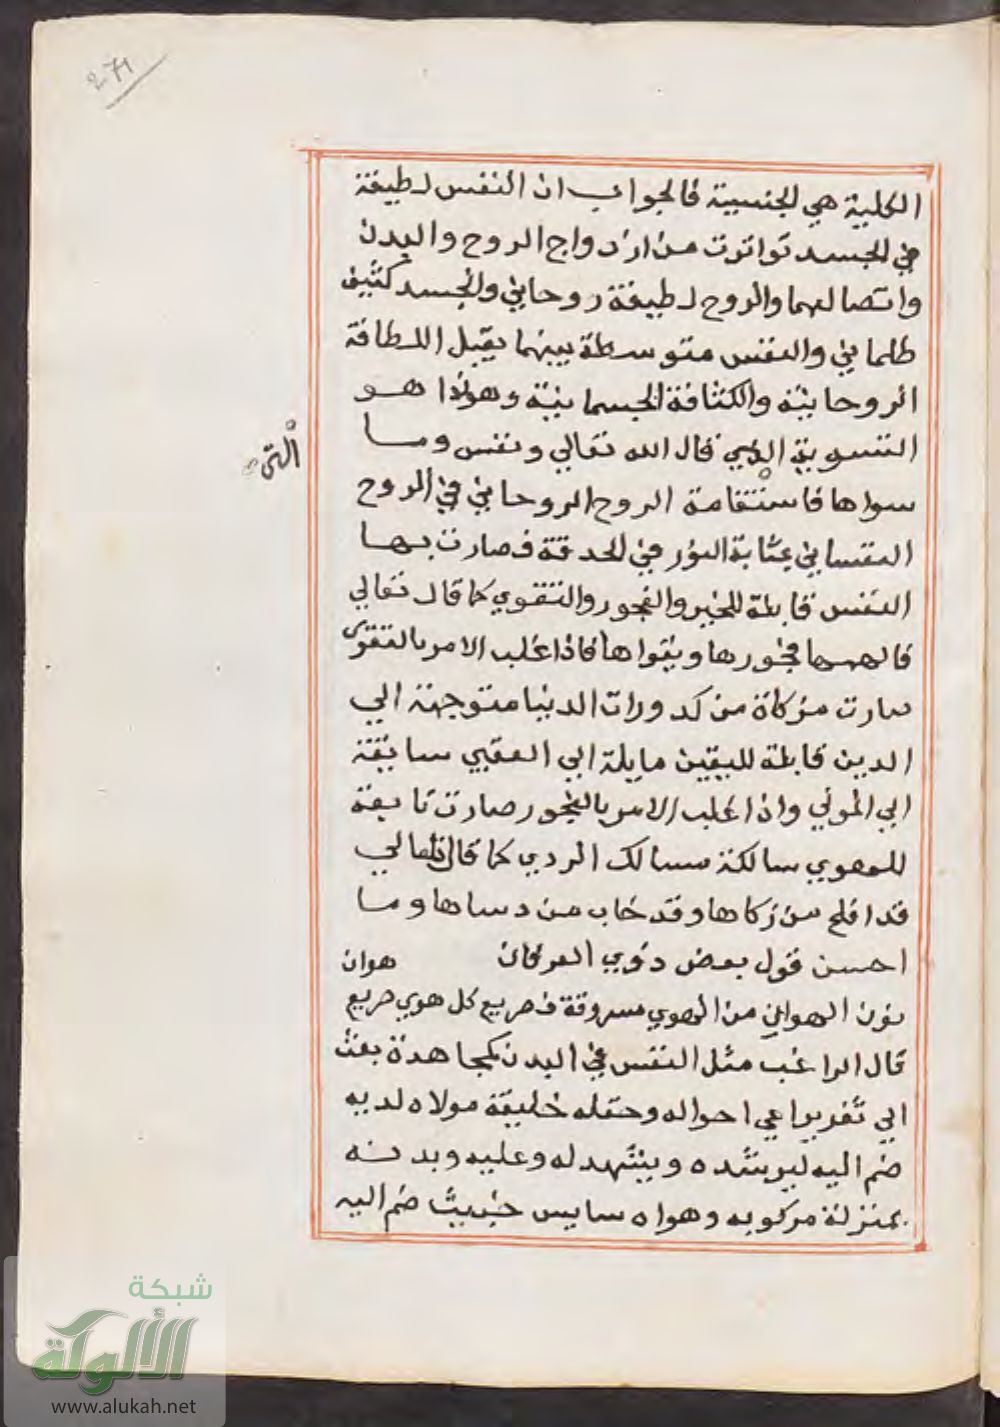 271
الكلية هي الجنسية فالجواب ان النفس لطيفة
في الجسد تواترت من ازدواج الروح والبدن
واتصالهما والروح لطيفة روحاني والجسد كثيف
ظلماني والنفس متوسطة بينهما يقبل اللطافة
الروحانية والكثافة الجسمانية وهوذا هو
التسوية الذي قال الله تعالي ونفس وما
التي
سواها فاستقامة الروح الروحاني في الروح
النفساني بمثابة النور في الحدقة فصارت بها
النفس قابلة للخير والفجور والتقوي كما قال تعالي
فالهمها فجورها وتقواها فاذا غلب الامر بالتقوى
صارت مزكاة من كدورات الدنيا متوجهة الي
الدين قابلة لليقين مايلة الي العقبي سابقة
الي المولي واذا غلب الامر بالفجور صارت تابعة
للهوي سالكة مسالك الردي كما قال تعالي
قد افلح من زكاها وقد خاب من دساها وما
احسن قول بعض ذوي العرفان هوان
نون الهوان من الهوي مسروقة فصريع كل هوي صريع
قال الراغب مثل النفس في البدن كمجاهدة بعث
الي ثغر يراعي احواله وعقله خليفة مولاه لديه
ضم اليه ليرشده ويشهد له وعليه وبدنه
بمنزلة مركوبه وهواه سايس خبيث ضم اليه
شبكة
الألوكة
www.alukah.net